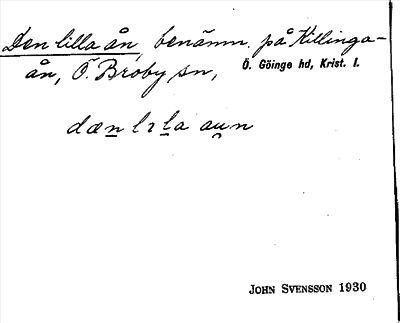 Den lilla ån, benämn. på Killinga-
ån, Ö. Broby sn, Ö. Göinge hd, Krist. l.
dæn lɪla aun
JOHN SVENSSON 1930